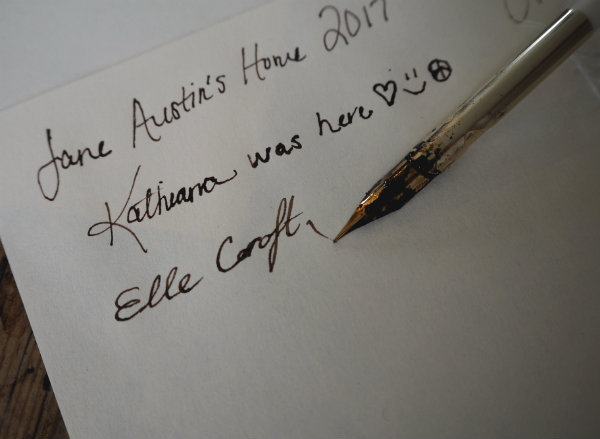 Jane Austin's Home 2017
Katheana was here ♡ :) ☮
Elle Croft